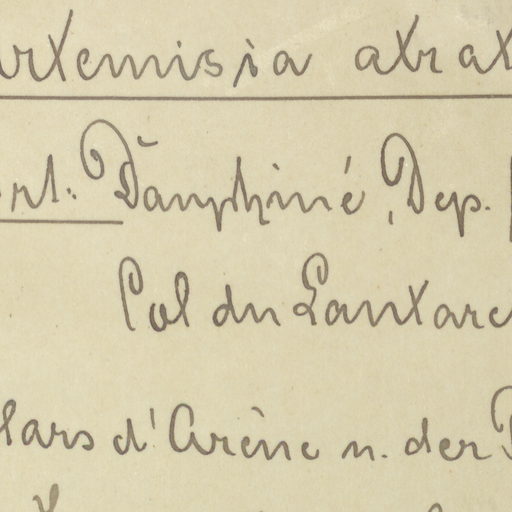 Artemisia atrat
ort: Dauphiné, Dep.
Col du Lautare
lars d'Arène n. der